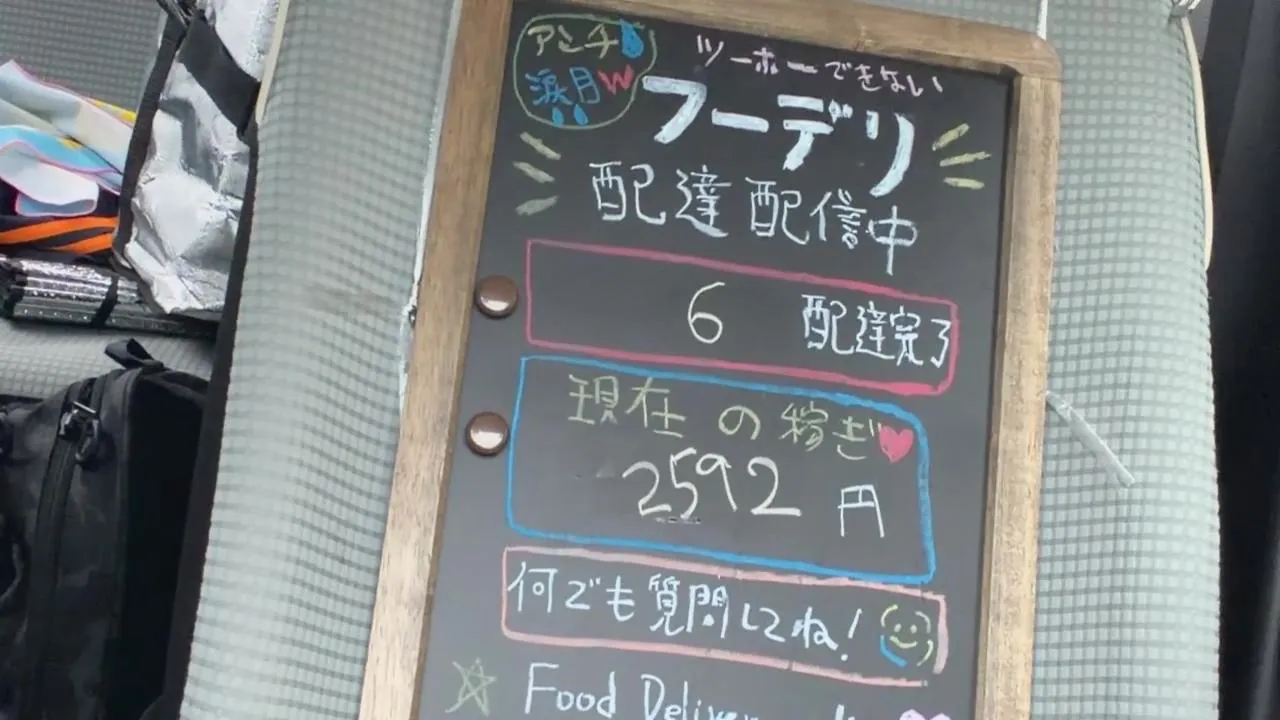 アンチ
涙目w
ツーホーできない
フーデリ
配達配信中
6 配達完了
現在の稼ぎ
2592円
何でも質問してね!
Food